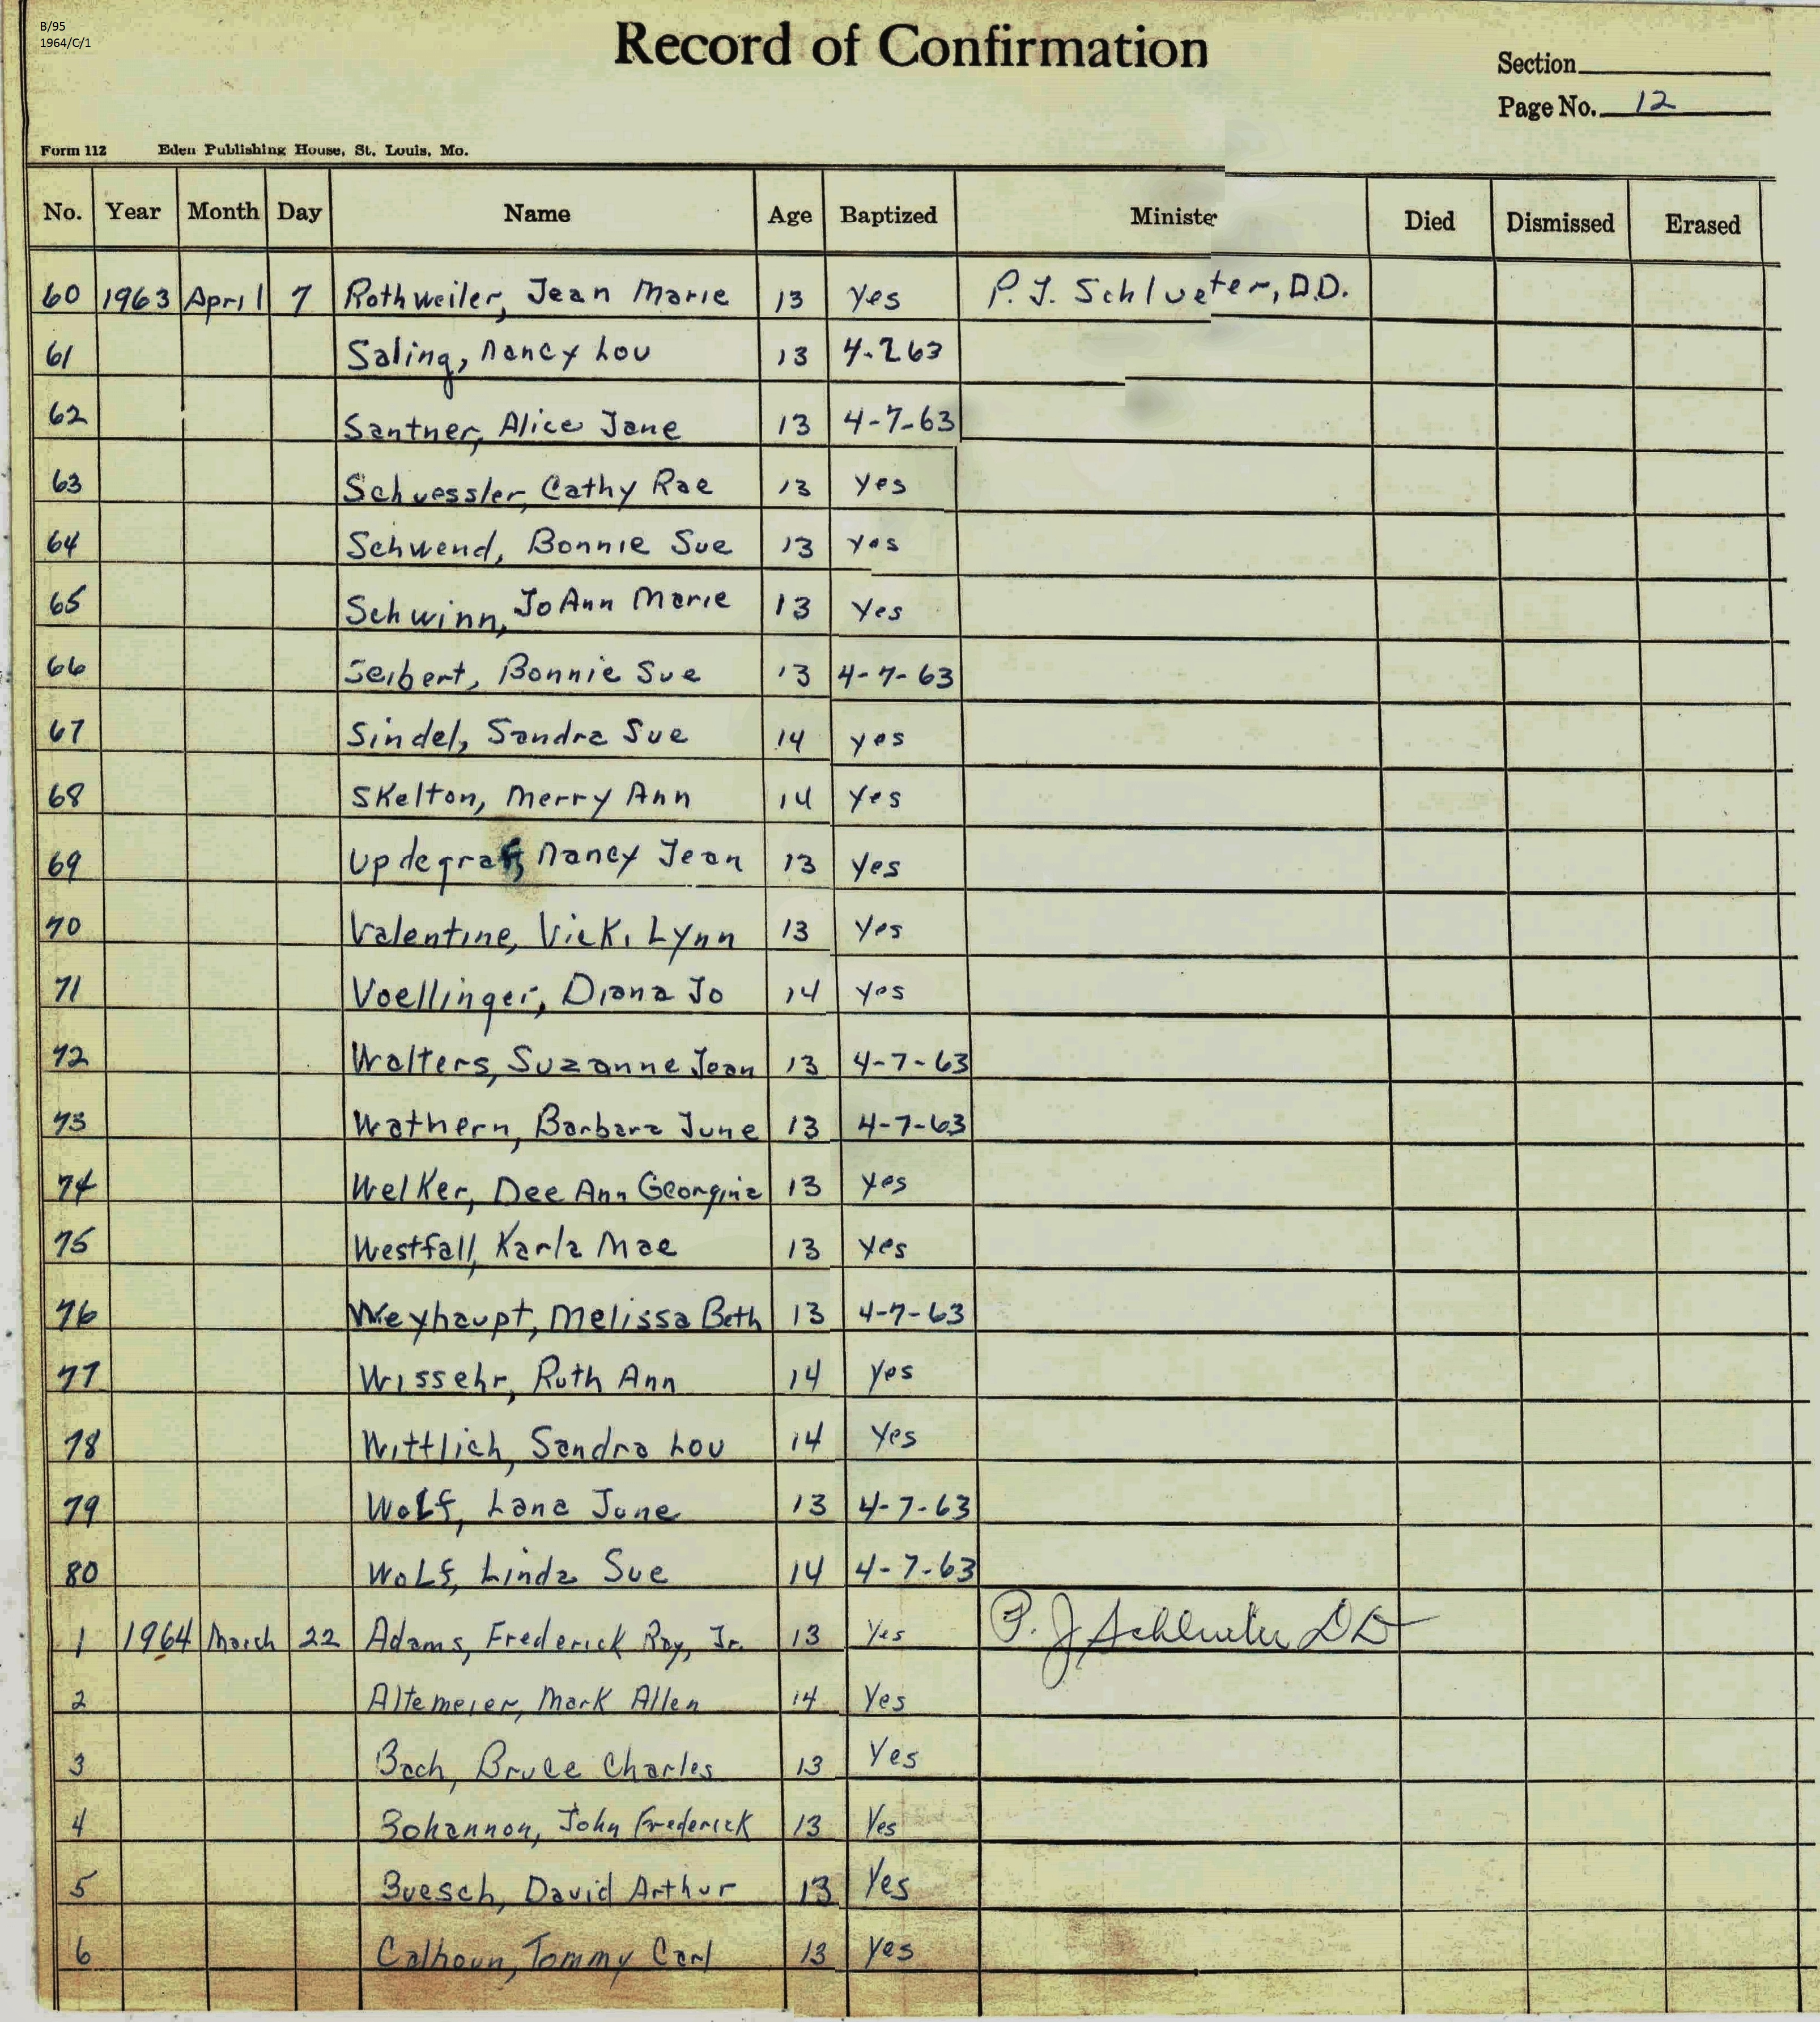 B/95
1964/C/1
Record of Confirmation
Section
Page No. 12
Form 112 Eden Publishing House, St. Louis, Mo.
No. Year Month Day Name Age Baptized Ministe Died Dismissed Erased
60 1963 April 7 Rothweiler, Jean Marie 13 Yes P. J. Schlueter, D.D.
61 Saling, Nancy Lou 13 4-2 63
62 Santner, Alice Jane 13 4-7-63
63 Schuessler, Cathy Rae 13 Yes
64 Schwend, Bonnie Sue 13 Yes
65 Schwinn, JoAnn Marie 13 Yes
66 Seibert, Bonnie Sue 13 4-7-63
67 Sindel, Sandra Sue 14 yes
68 Skelton, Merry Ann 14 Yes
69 Updegraff, Nancy Jean 13 Yes
70 Valentine, Vicki Lynn 13 Yes
71 Voellinger, Diana Jo 14 Yes
72 Walters, Suzanne Jean 13 4-7-63
73 Wathern, Barbara June 13 4-7-63
74 Welker, Dee Ann Georgine 13 Yes
75 Westfall, Karla Mae 13 Yes
76 Weyhaupt, Melissa Beth 13 4-7-63
77 Wissehr, Ruth Ann 14 Yes
78 Wittlich, Sandra Lou 14 Yes
79 Wolf, Lana June 13 4-7-63
80 Wolf, Linda Sue 14 4-7-63
1 1964 March 22 Adams, Frederick Ray, Jr. 13 Yes P. J. Schlueter DD
2 Altemeier, Mark Allen 14 Yes
3 Bach, Bruce Charles 13 Yes
4 Bohannon, John Frederick 13 Yes
5 Buesch, David Arthur 13 Yes
6 Calhoun, Tommy Carl 13 Yes